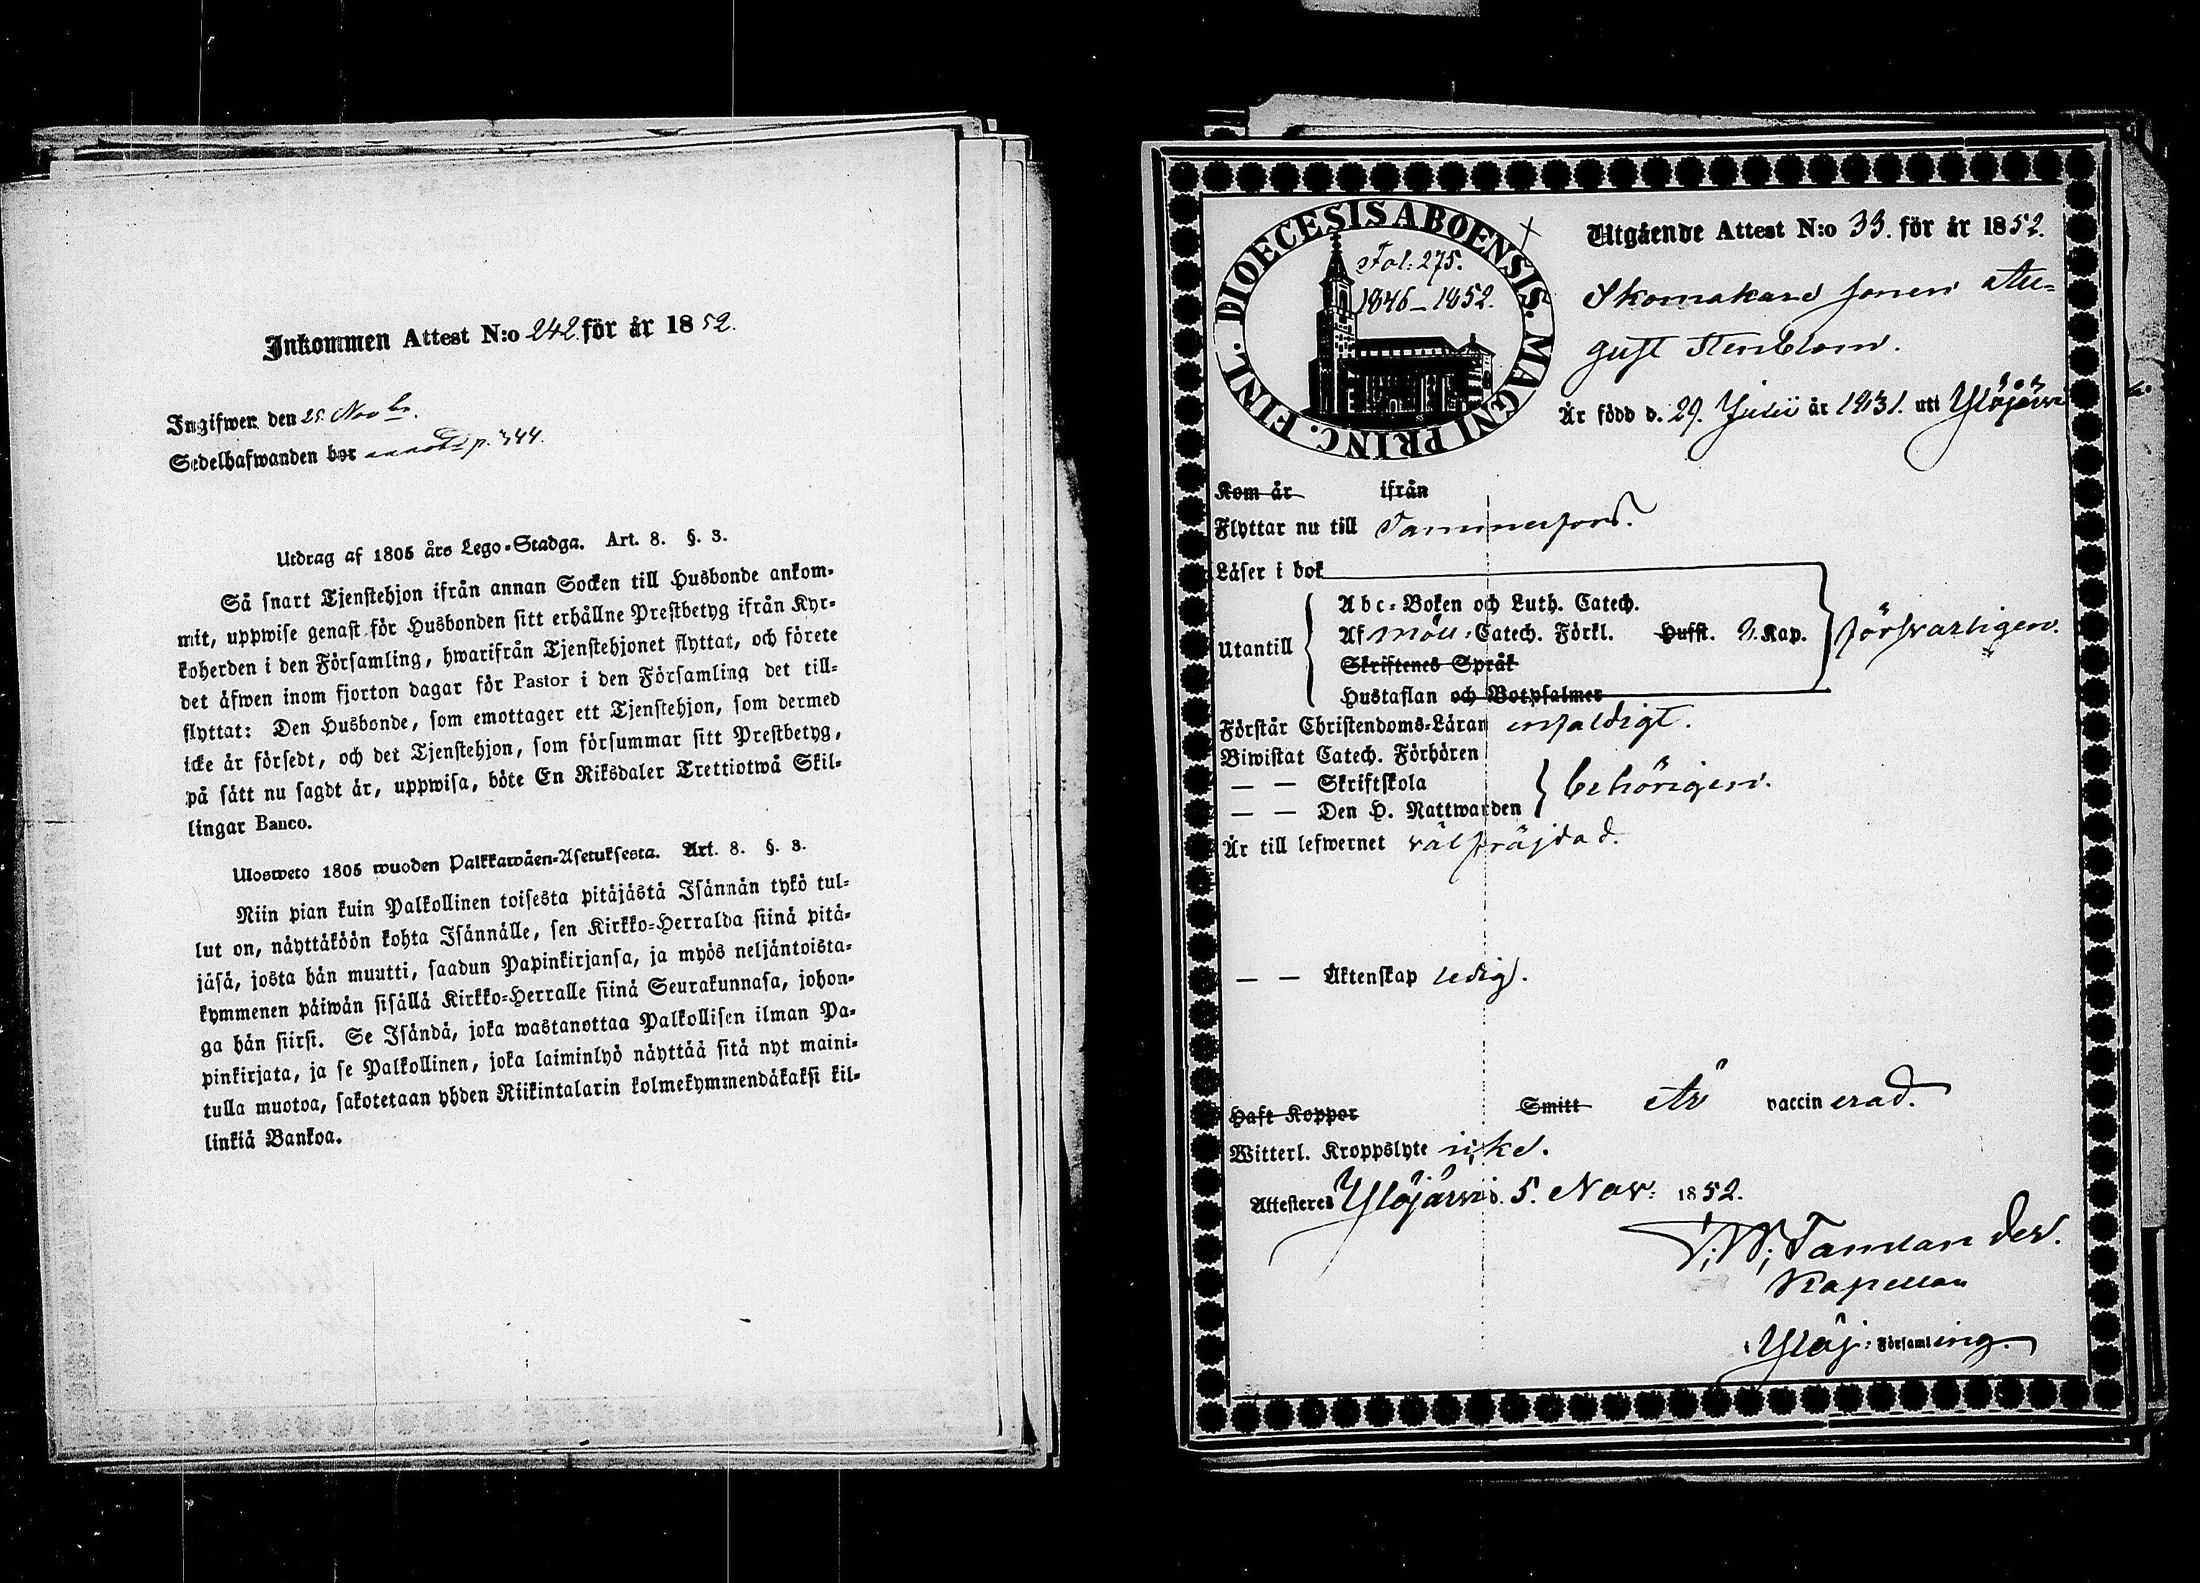 Inkommen Attest N:o 242. för år 1852.
Ingifwen den 25 Novbr.
Sedelhafwanden bor p. 344.
Utdrag af 1805 års Lego-Stadga. Art. 8. §. 3.
Så snart Tjenstehjon ifrån annan Socken till Husbonde ankom-
mit, uppwise genast för Husbonden sitt erhållne Prestbetyg ifrån Kyr-
koherden i den Församling, hwarifrån Tjenstehjonet flyttat, och förete
det äfwen inom fjorton dagar för Pastor i den Församling det till-
flyttat: Den Husbonde, som emottager ett Tjenstehjon, som dermed
icke är försedt, och det Tjenstehjon, som försummar sitt Prestbetyg,
på sätt nu sagdt är, uppwisa, böte En Riksdaler Trettiotwå Skil-
lingar Banco.
Ulosweto 1805 wuoden Palkkawäen-Asetuksesta. Art. 8. §. 3.
Niin pian kuin Palkollinen toisesta pitäjästä Isännän tykö tul-
lut on, näyttäköön kohta Isännälle, sen Kirkko-Herralda siinä pitä-
jäsä, josta hän muutti, saadun Papinkirjansa, ja myös neljäntoista-
kymmenen päiwän sisällä Kirkko-Herralle siinä Seurakunnasa, johon-
ga hän siirsi. Se Isändä, joka wastanottaa Palkollisen ilman Pa-
pinkirjata, ja se Palkollinen, joka laiminlyö näyttää sitä nyt maini-
tulla muotoa, sakotetaan yhden Riikintalarin kolmekymmendäkaksi kil-
linkiä Bankoa.
DIOECESIS ABOENSIS. MAGNI PRINC. FINL.
Fol: 275.
1846-1852.
Utgående Attest N:o 33. för år 1852.
Skomakare sonen Au-
gust Stenblom.
Är född d. 29. Julii år 1831. uti Ylöjärvi
Kom år ifrån
Flyttar nu till Tammerfors.
Läser i bok
Abc-Boken och Luth. Catech.
Utantill Af Möll: Catech. Förkl. Hufst. 2. Kap. försvarligen.
Skriftenes Språk
Hustaflan och Botpsalmer
Förstår Christendoms-Läran enfaldigt.
Biwistat Catech. Förhören
— — Skriftskola behörigen.
— — Den H. Nattwarden
Är till lefwernet välfräjdad.
— — Äktenskap ledig.
Haft Koppor Smitt Är vaccinerad.
Witterl. Kroppslyte icke.
Attesteres Ylöjärvi d. 5. Nov: 1852.
Tamlander.
Kapellan
Ylöj: Församling.